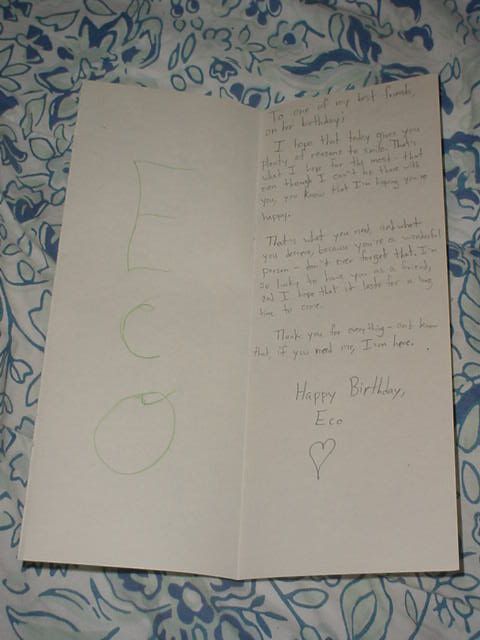 E
C
O
To one of my best friends,
on her birthday:
I hope that today gives you
plenty of reasons to smile. That's
what I hope for the most - that
even though I can't be there with
you, you know that I'm hoping you're
happy.
That's what you need, and what
you deserve, because you're a wonderful
person - don't ever forget that. I'm
so lucky to have you as a friend,
and I hope that it lasts for a long
time to come.
Thank you for everything - and know
that if you need me, I'm here.
Happy Birthday,
Eco